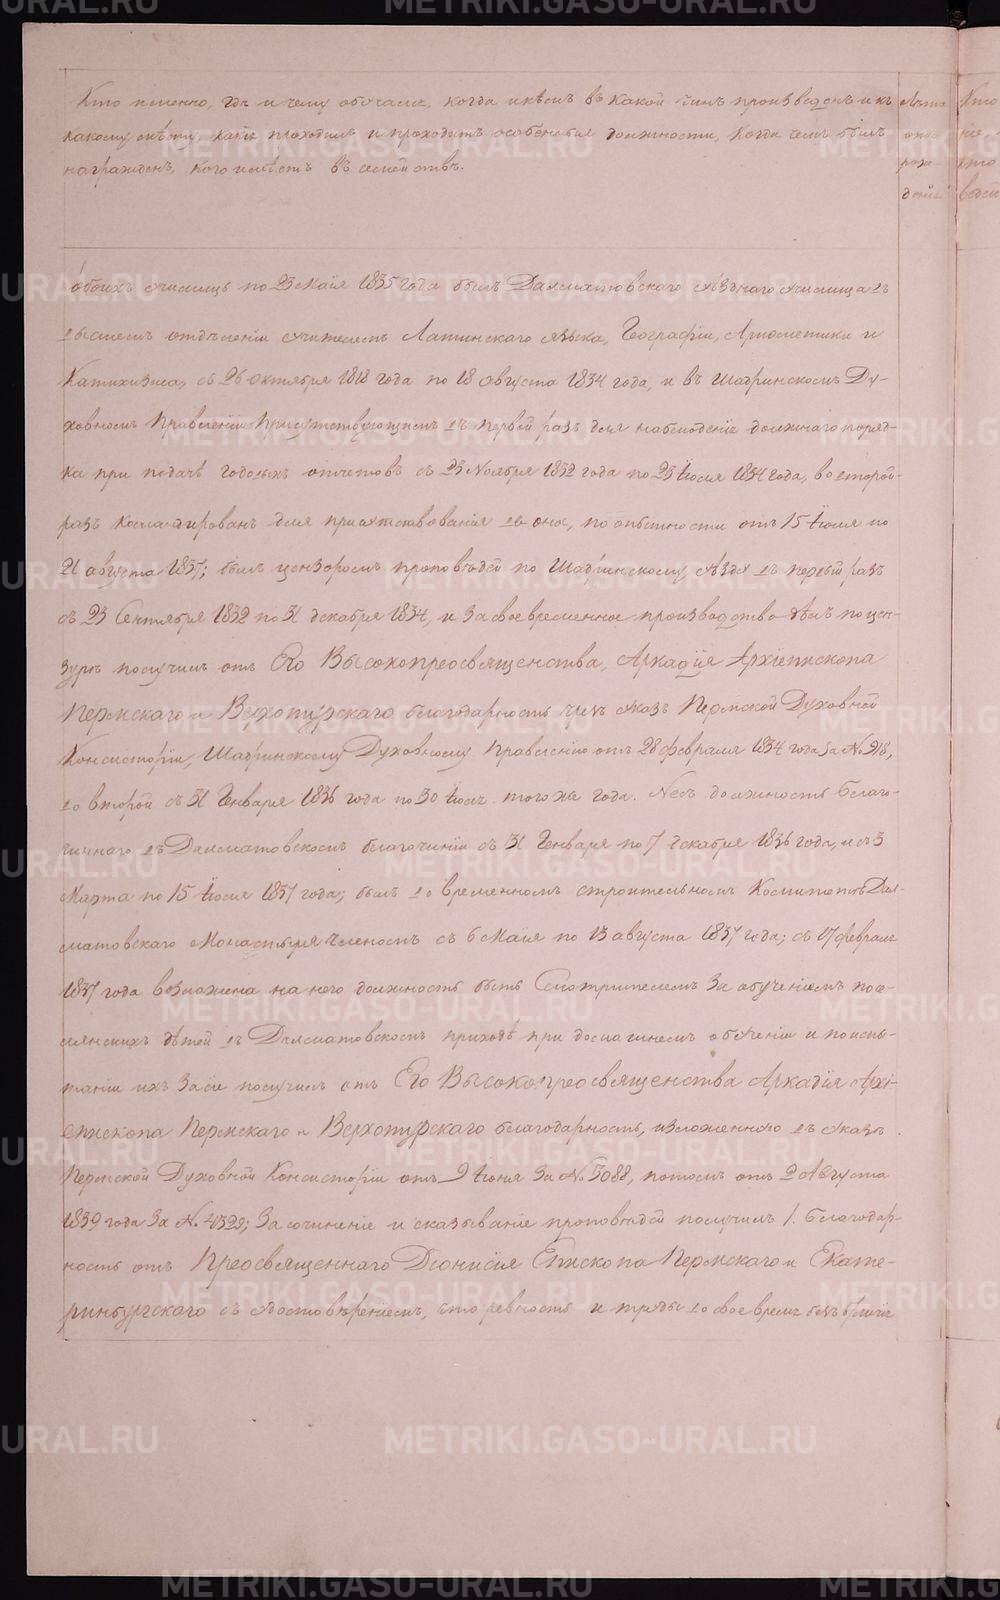 Кто именно, гдѣ и чему обучался, когда и кѣмъ въ какой чинъ произведенъ и къ
какому мѣсту, какія проходилъ и проходитъ особенныя должности, когда чемъ былъ
награжденъ, кого имѣетъ въ семействѣ.
Лѣта
отъ
рож-
денія
Кто
обоихъ училищъ по 23 Маія 1835 года былъ Далматовскаго уѣзднаго училища въ
высшемъ отдѣленіи учителемъ Латинскаго языка, Географіи, Ариѳметики и
Катихизиса, съ 26 октября 1818 года по 18 августа 1834 года, и въ Шадринскомъ Ду-
ховномъ Правленіи Присутствующимъ въ первой разъ для наблюденія должнаго поряд-
ка при подачѣ годовыхъ отчетовъ съ 23 Ноября 1832 года по 23 Іюля 1834 года, во второй
разъ командированъ для присутствованія въ оное, по опытности отъ 15 Іюля по
21 августа 1837; былъ цензоромъ проповѣдей по Шадринскому уѣзду въ первый разъ
съ 23 Сентября 1832 по 31 декабря 1834, и за своевременное производство дѣлъ по цен-
зурѣ получилъ отъ Его Высокопреосвященства, Аркадія Архіепископа
Пермскаго и Верхотурскаго благодарность чрезъ указъ Пермской Духовной
Консисторіи, Шадринскому Духовному Правленію отъ 28 февраля 1834 года за № 918,
во второй съ 31 Генваря 1836 года по 30 Іюля того же года. Несъ должность Благо-
чиннаго въ Далматовскомъ благочиніи съ 31 Генваря по 7 декабря 1836 года, и съ 3
Марта по 15 Іюля 1837 года; былъ во временномъ строительномъ Комитетѣ Дал-
матовскаго Монастыря членомъ съ 6 Маія по 13 августа 1837 года; съ 17 февраля
1837 года возложена на него должность быть Смотрителемъ за обученіемъ посе-
лянскихъ дѣтей въ Далматовскомъ приходѣ при домашнемъ обученіи и по испы-
таніи ихъ за сіе получилъ отъ Его Высокопреосвященства Аркадія Архі-
епископа Пермскаго и Верхотурскаго благодарность, изложенную въ указѣ
Пермской Духовной Консисторіи отъ 9 Іюня за № 5088, потомъ отъ 2 Августа
1839 года за № 4328; За сочиненіе и сказываніе проповѣдей получилъ 1. Благодар-
ность отъ Преосвященнаго Діонисія Епископа Пермскаго и Екате-
ринбургскаго съ удостовѣреніемъ, что ревность и труды во свое время безъ
METRIKI.GASO-URAL.RU